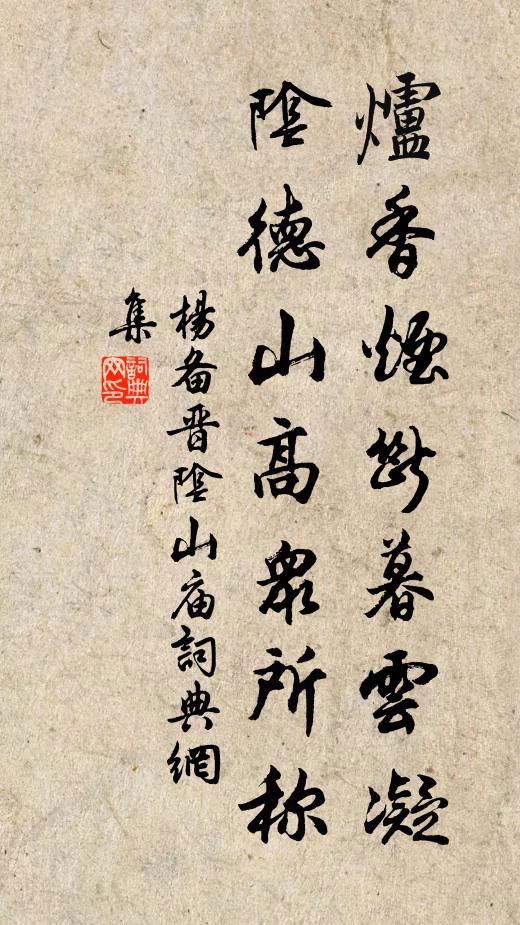 爐香煙斷暮雲凝
陰德山高眾所称
楊备晋陰山庙詞典網
集
詞典
网印